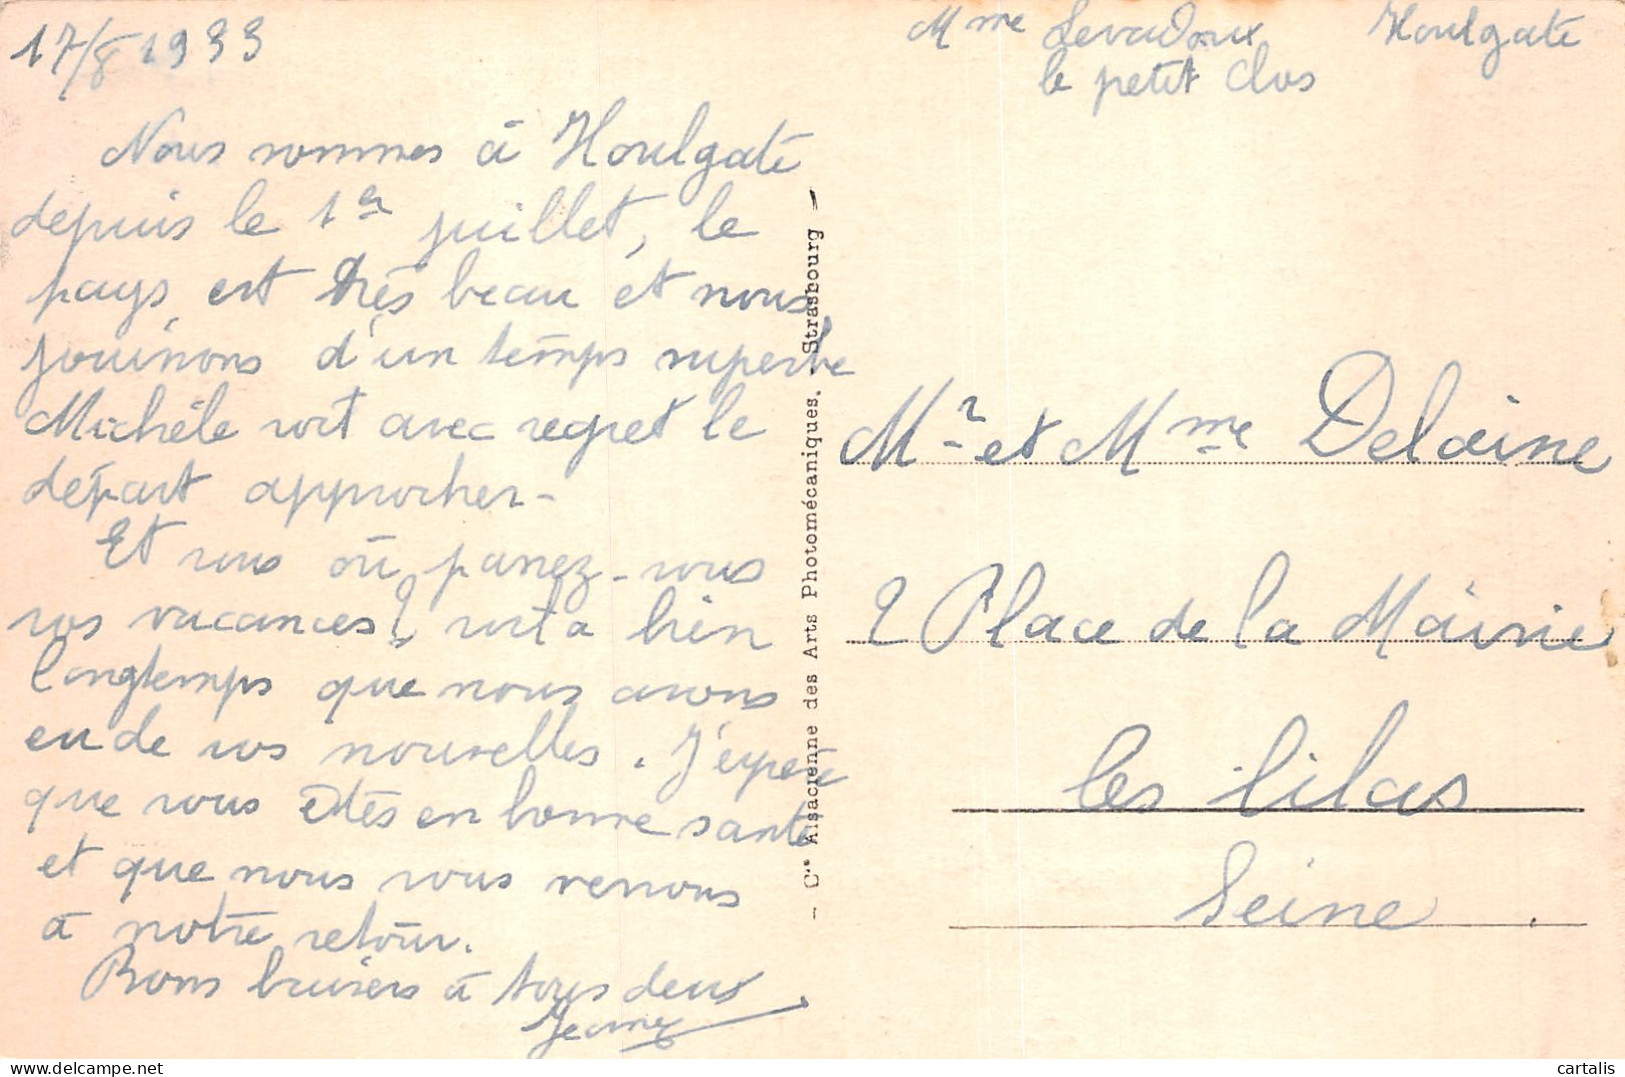 17/8 1933
Nous sommes à Houlgate
depuis le 1er juillet, le
pays est très beau et nous
jouissons d'un temps superbe
Michèle voit avec regret le
départ approcher -
Et vous où passez-vous
vos vacances? voilà bien
longtemps que nous avons
eu de vos nouvelles. J'espère
que vous êtes en bonne santé
et que nous vous verrons
à notre retour.
Bons baisers à tous deux
Jeanne
- Cie Alsacienne des Arts Photomécaniques. - Strasbourg -
Mme Levadoux Houlgate
le petit Clos
Mr et Mme Delaine
2 Place de la Mairie
les lilas
Seine.
cartalis